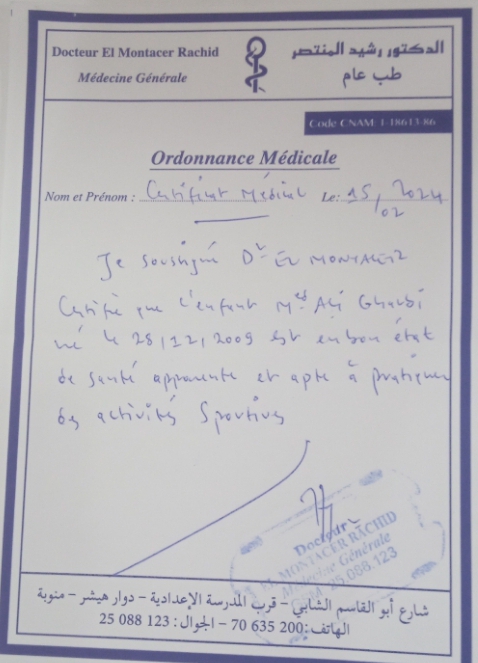 Docteur El Montacer Rachid
Médecine Générale
الدكتور رشيد المنتصر
طب عام
Code CNAM: 1-18613-86
Ordonnance Médicale
Nom et Prénom : Certificat Médical Le: 15/02 2024
Je soussigné Dr EL MONTACER
Certifie que l'enfant Med Ali Gharbi
né le 28/12/2009 est en bon état
de santé apparente et apte à pratiquer
des activités Sportives
Docteur
EL MONTACER RACHID
Médecine Générale
GSM: 25.088.123
شارع أبو القاسم الشابي - قرب المدرسة الإعدادية - دوار هيشر - منوبة
الهاتف: 70 635 200 - الجوال: 25 088 123